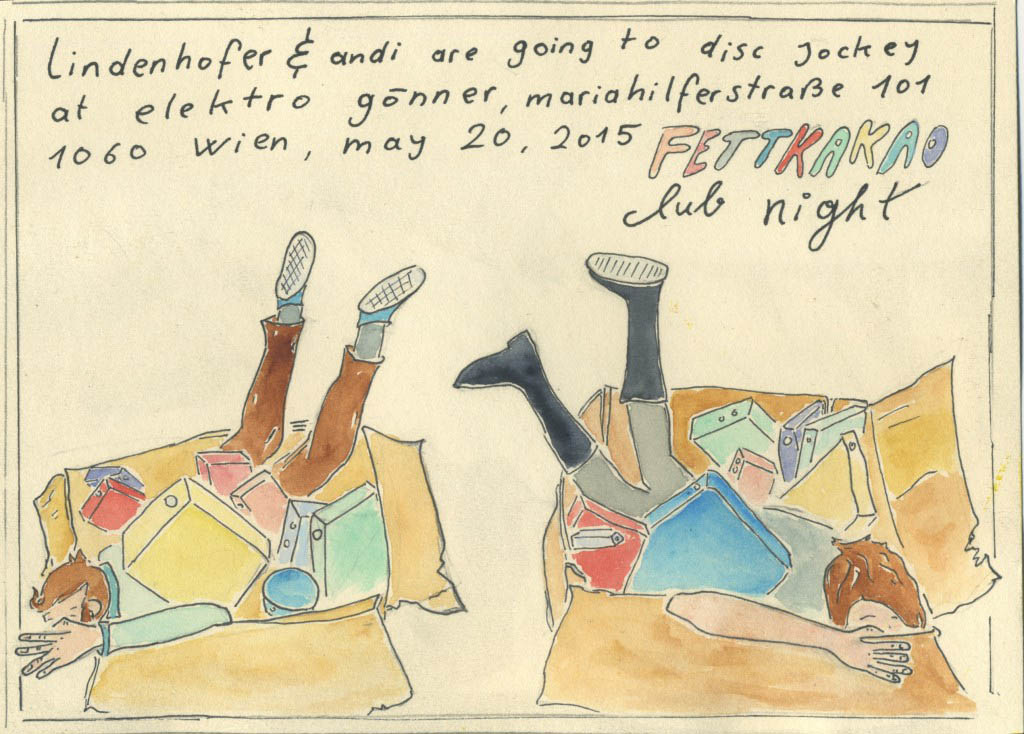 lindenhofer & andi are going to disc jockey
at elektro gönner, mariahilferstraße 101
1060 wien, may 20, 2015 FETTKAKAO
club night